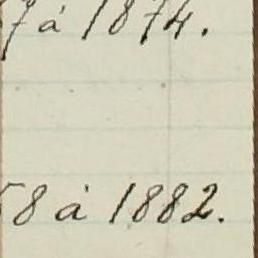 7 à 1874.
58 à 1882.